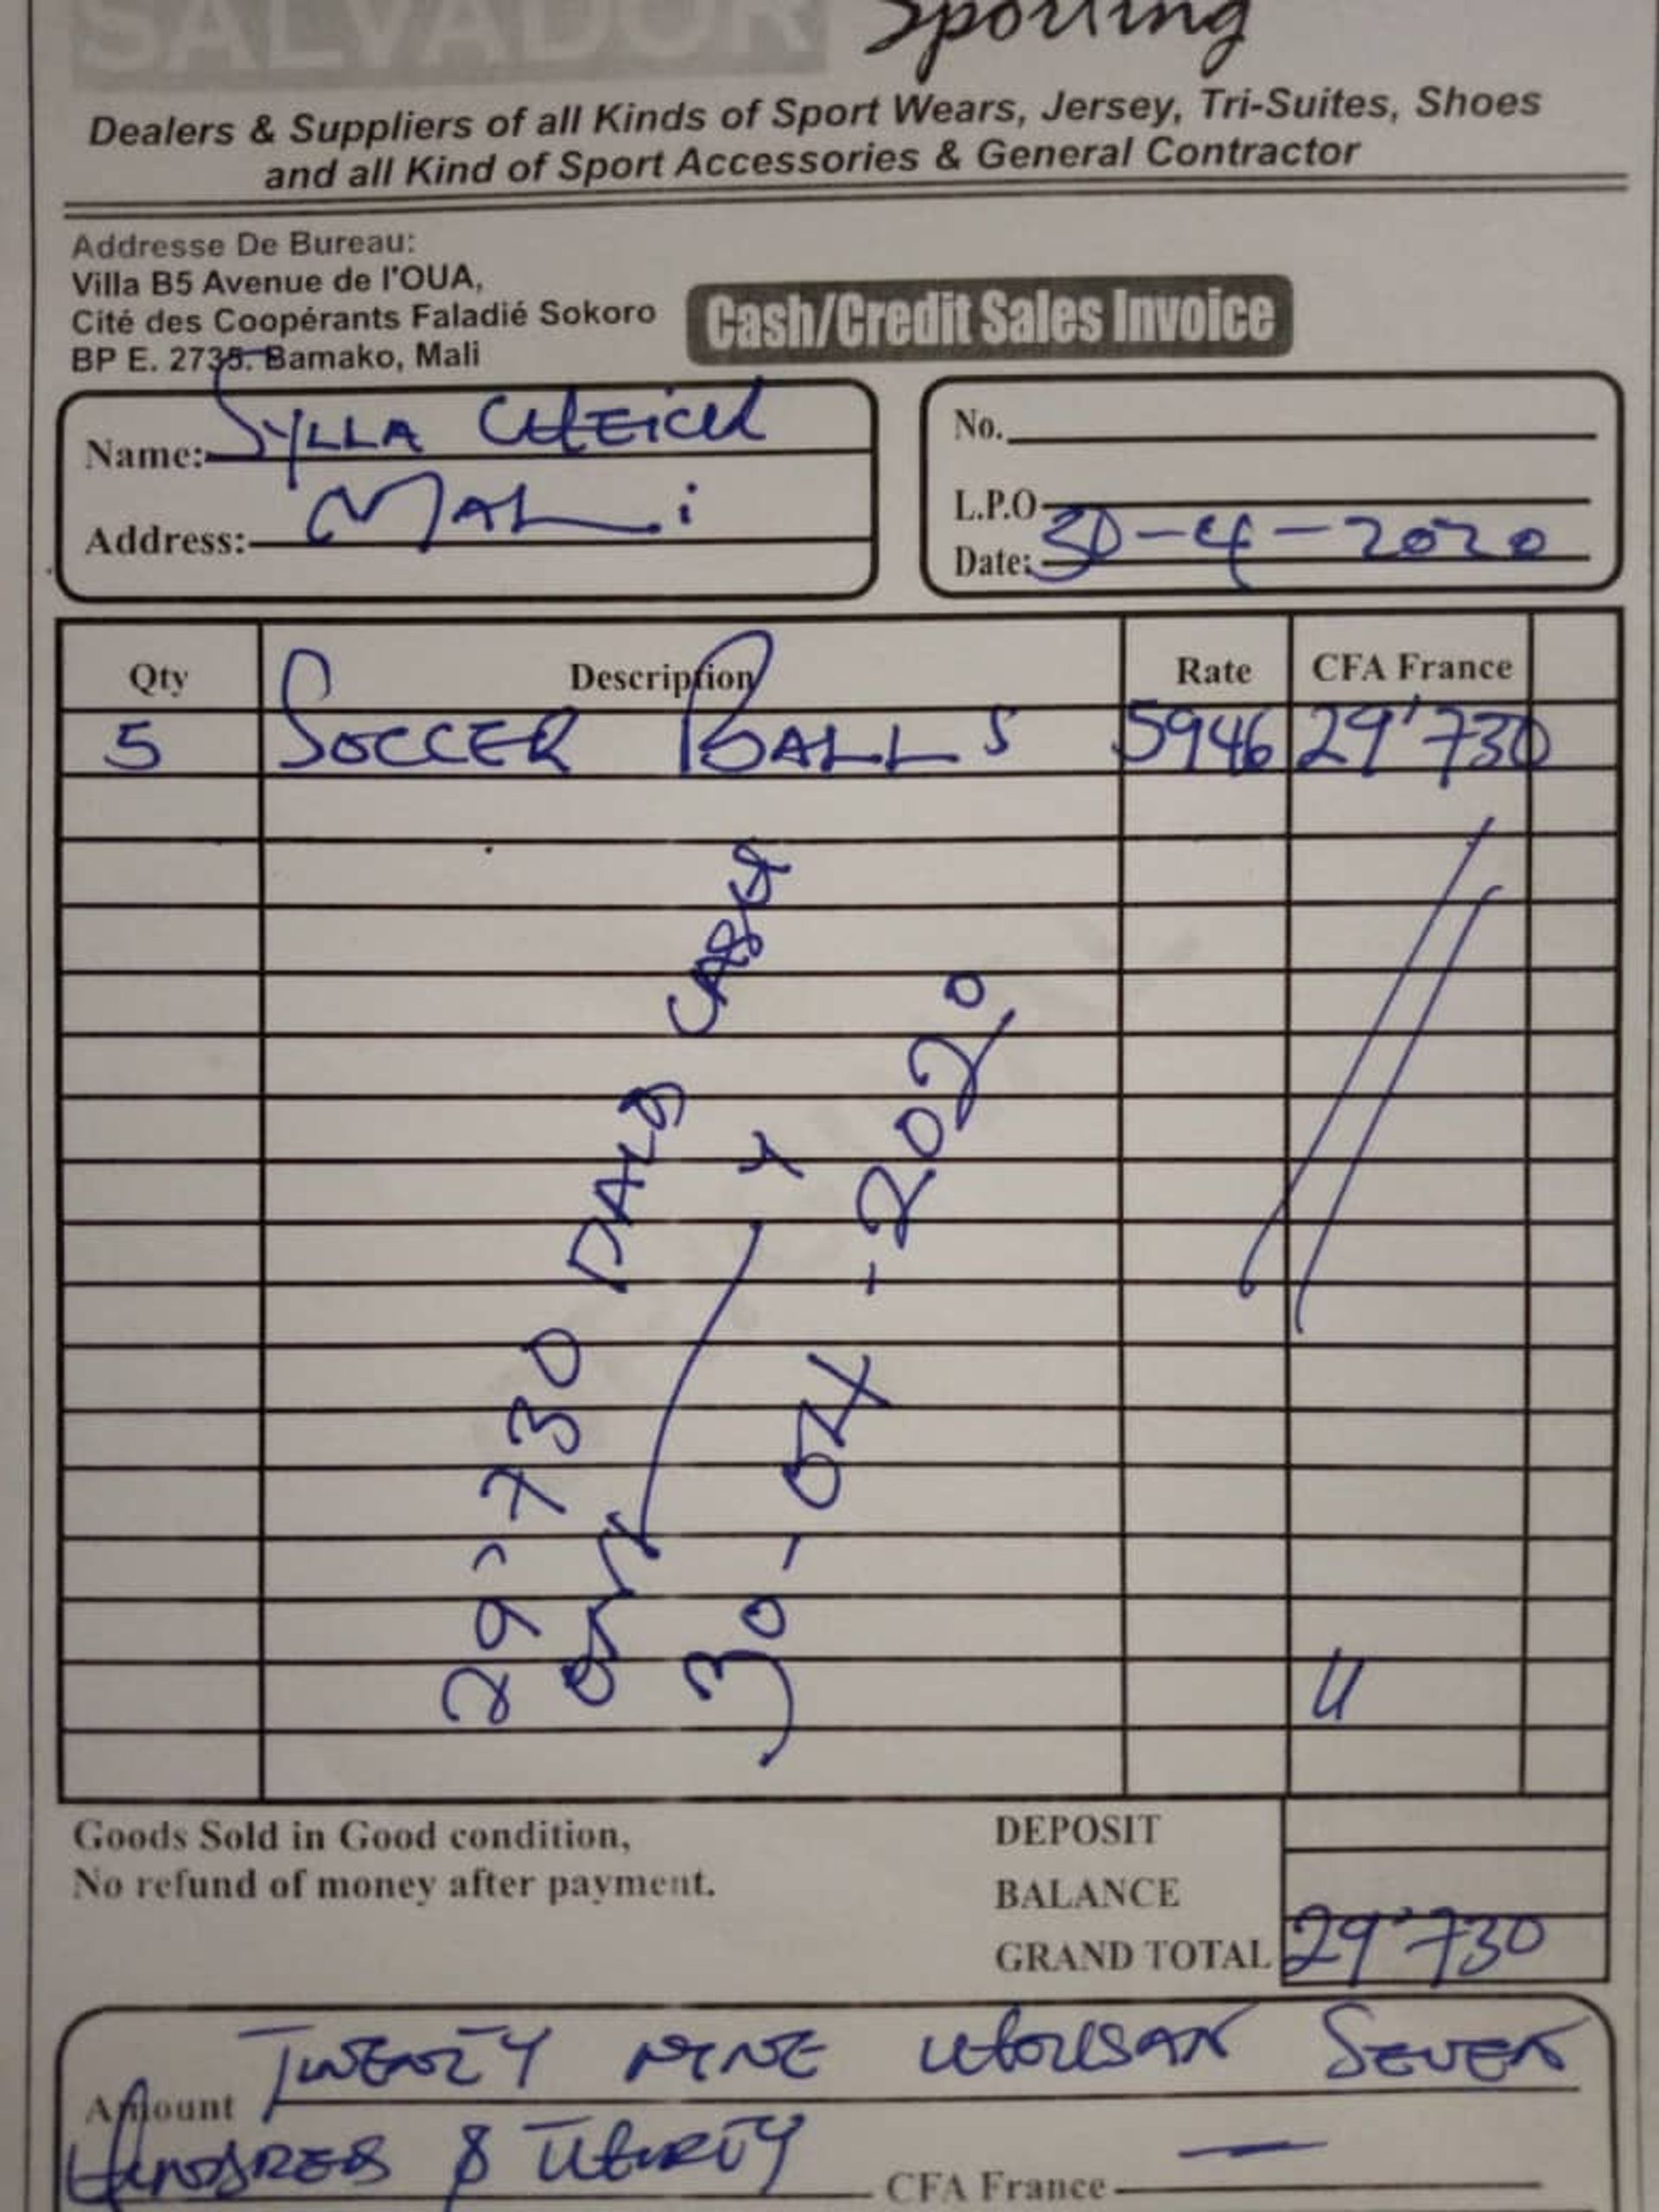 SALVADOR Sporting
Dealers & Suppliers of all Kinds of Sport Wears, Jersey, Tri-Suites, Shoes
and all Kind of Sport Accessories & General Contractor
Addresse De Bureau:
Villa B5 Avenue de l'OUA,
Cité des Coopérants Faladié Sokoro
BP E. 2735. Bamako, Mali
Cash/Credit Sales Invoice
Name: SYLLA CHEICH
Address: MALi
No.
L.P.O
Date: 30-4-2020
Qty Description Rate CFA France
5 SOCCER BALLS 5946 29'730
29'730 PAID CASH
30-04-2020
Goods Sold in Good condition,
No refund of money after payment.
DEPOSIT
BALANCE
GRAND TOTAL 29'730
Amount TWENTY NINE THOUSAN SEVEN
HUNDRED & THIRTY CFA France